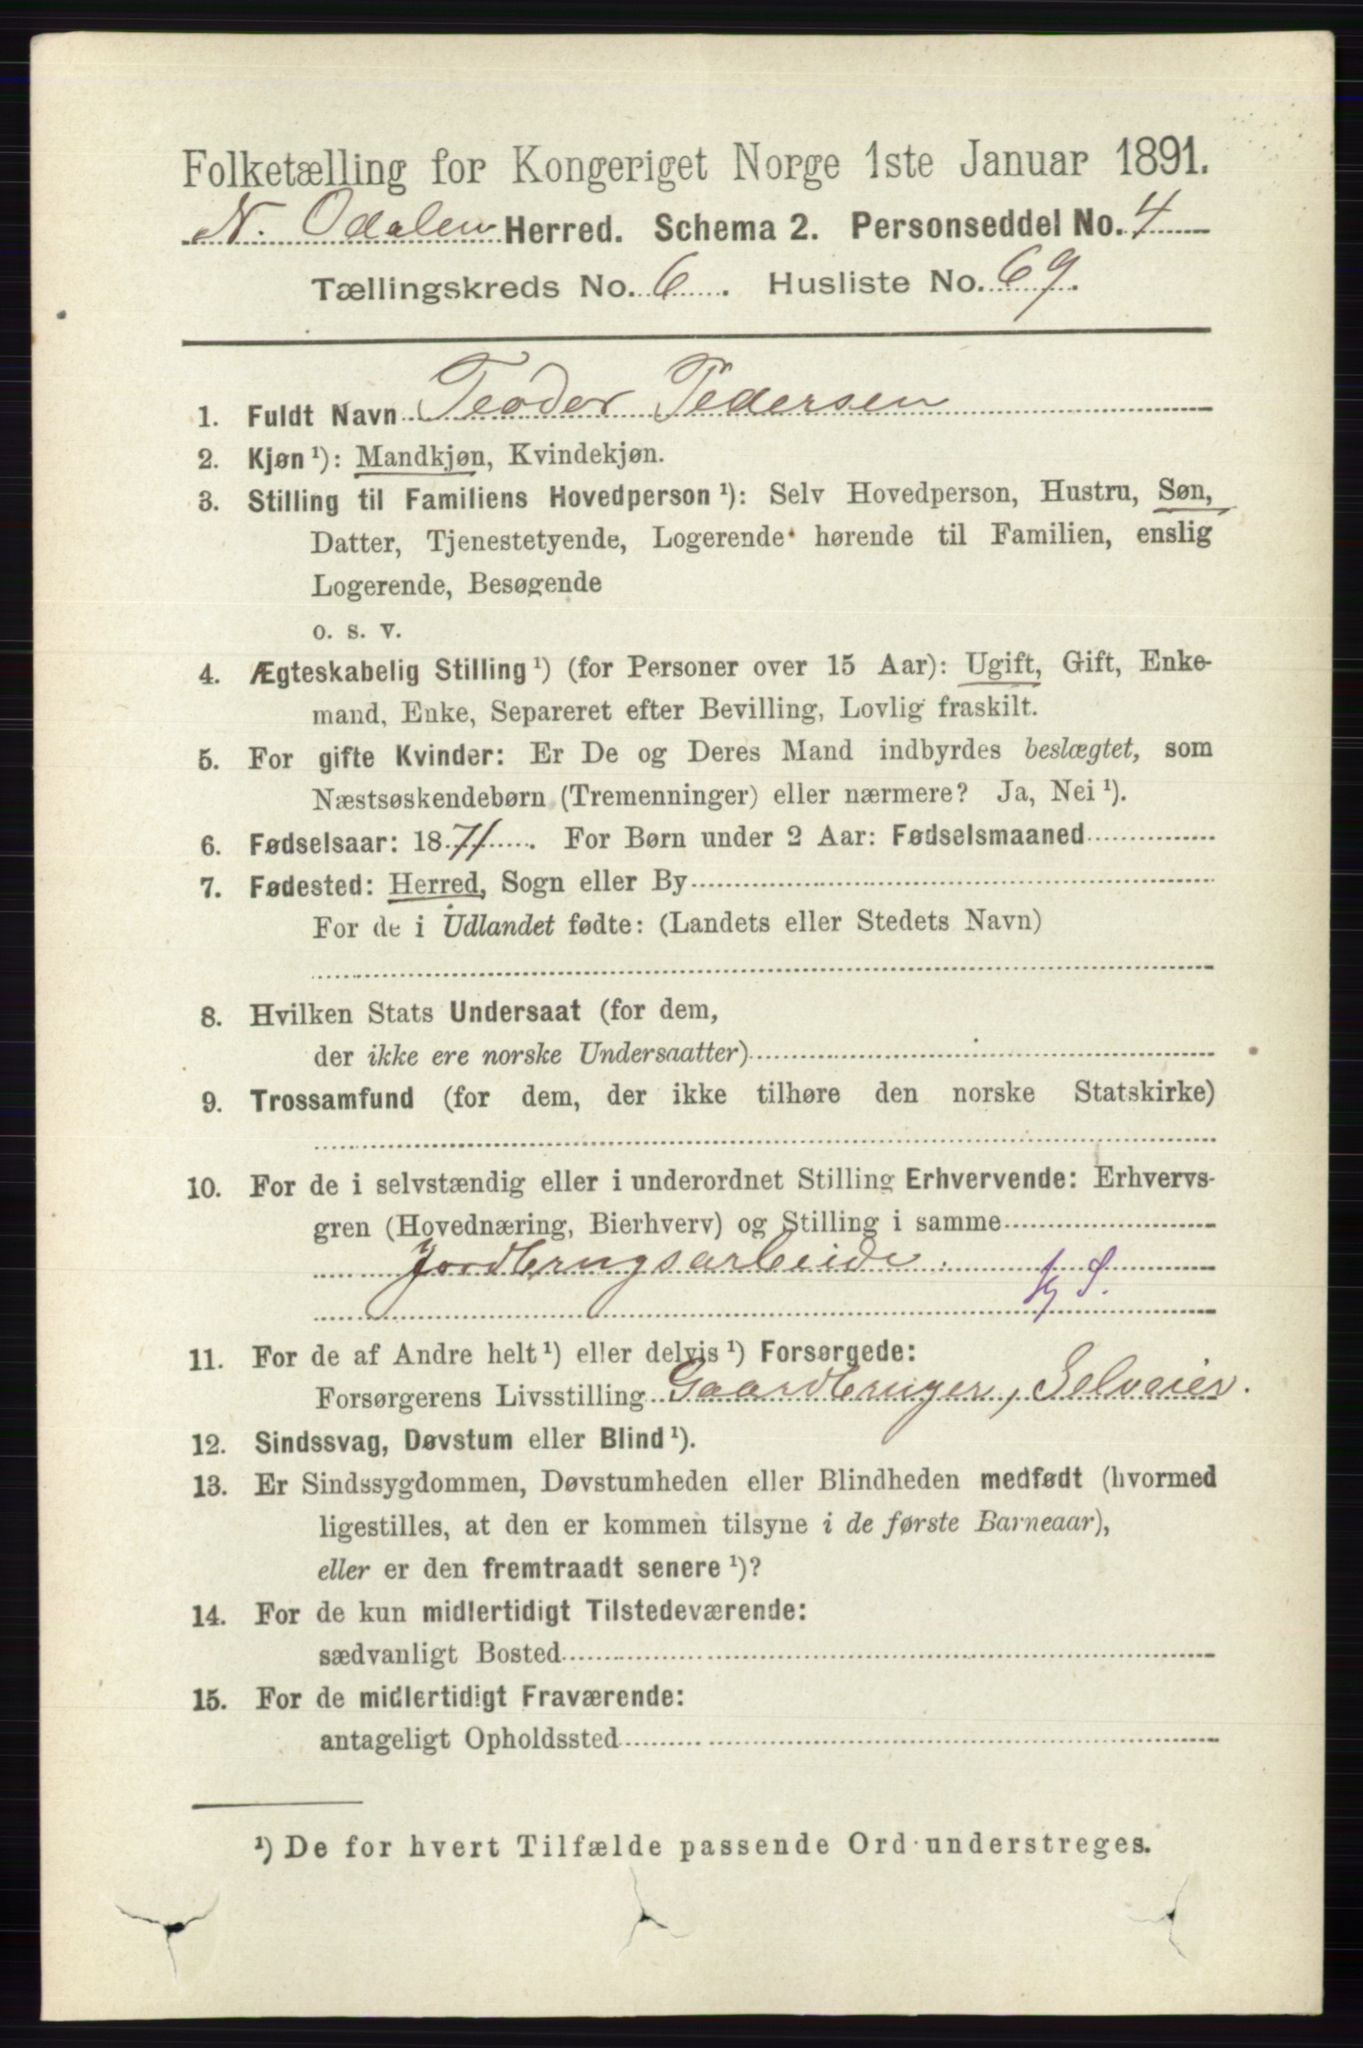 Folketælling for Kongeriget Norge 1ste Januar 1891.
N. Odalen Herred. Schema 2. Personseddel No. 4
Tællingskreds No. 6. Husliste No. 69.
1. Fuldt Navn Teodor Pedersen
2. Kjøn ¹): Mandkjøn, Kvindekjøn.
3. Stilling til Familiens Hovedperson ¹): Selv Hovedperson, Hustru, Søn,
Datter, Tjenestetyende, Logerende hørende til Familien, enslig
Logerende, Besøgende
o. s. v.
4. Ægteskabelig Stilling ¹) (for Personer over 15 Aar): Ugift, Gift, Enke-
mand, Enke, Separeret efter Bevilling, Lovlig fraskilt.
5. For gifte Kvinder: Er De og Deres Mand indbyrdes beslægtet, som
Næstsøskendebørn (Tremenninger) eller nærmere? Ja, Nei ¹).
6. Fødselsaar: 1871. For Børn under 2 Aar: Fødselsmaaned
7. Fødested: Herred, Sogn eller By
For de i Udlandet fødte: (Landets eller Stedets Navn)
8. Hvilken Stats Undersaat (for dem,
der ikke ere norske Undersaatter)
9. Trossamfund (for dem, der ikke tilhøre den norske Statskirke)
10. For de i selvstændig eller i underordnet Stilling Erhvervende: Erhvervs-
gren (Hovednæring, Bierhverv) og Stilling i samme
Jordbrugsarbeide.
11. For de af Andre helt ¹) eller delvis ¹) Forsørgede:
Forsørgerens Livsstilling Gaardbruger, Selveier.
12. Sindssvag, Døvstum eller Blind ¹).
13. Er Sindssygdommen, Døvstumheden eller Blindheden medfødt (hvormed
ligestilles, at den er kommen tilsyne i de første Barneaar),
eller er den fremtraadt senere ¹)?
14. For de kun midlertidigt Tilstedeværende:
sædvanligt Bosted
15. For de midlertidigt Fraværende:
antageligt Opholdssted
¹) De for hvert Tilfælde passende Ord understreges.